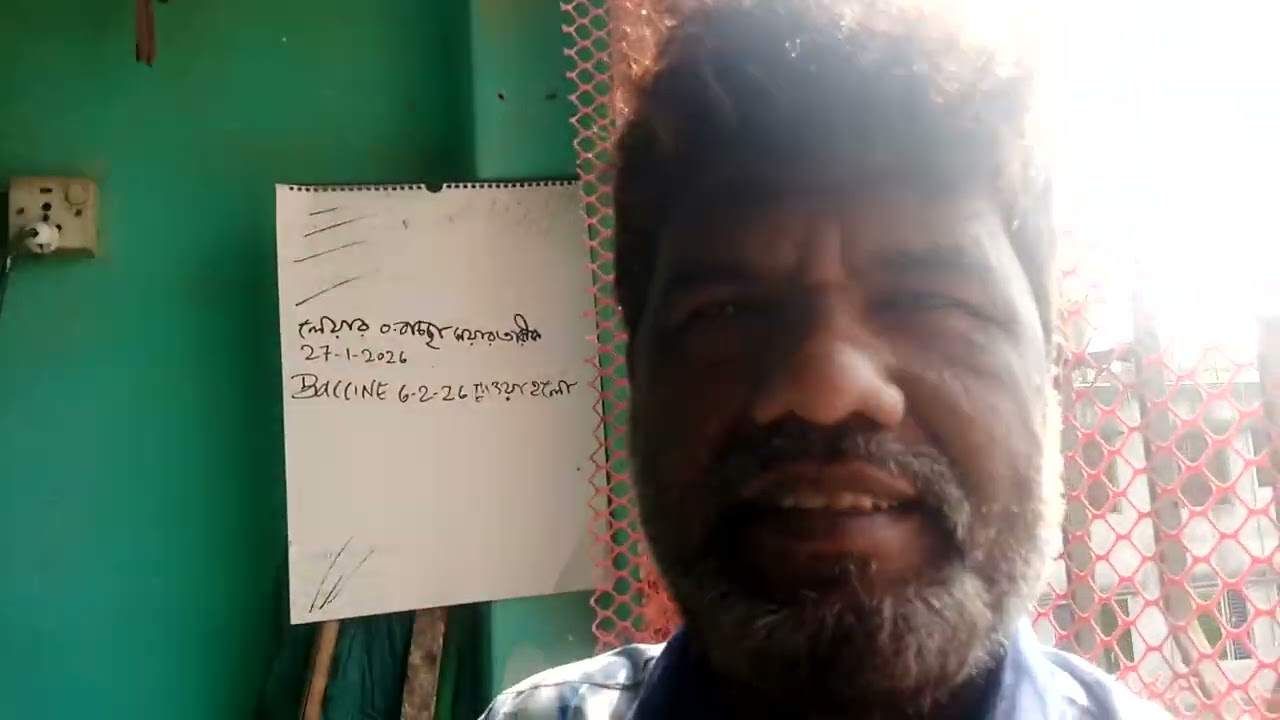 লেয়ার ০ বাচ্চা নেয়ার তারীখ
27-1-2026
BACCINE 6-2-26 দেওয়া হলো